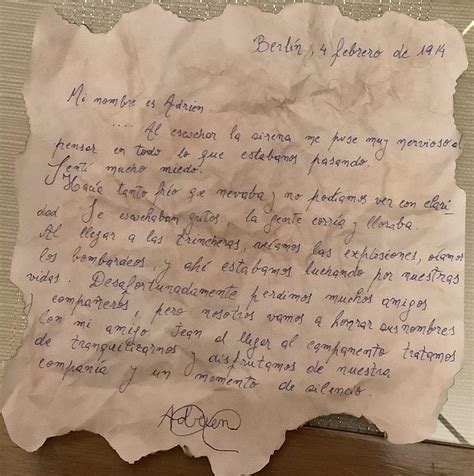 Berlín, 4 febrero de 1914
Mi nombre es Adrien
.... Al escuchar la sirena me puse muy nervioso al
pensar en todo lo que estabamos pasando.
Sentí mucho miedo.
Hacía tanto frío que nevaba y no podíamos ver con clari
dad. Se escuchaban gritos la gente corría y lloraba.
Al llegar a las trencheras, veíamos las explosiones, oíamos
los bombardeos, y ahí estabamos luchando por nuestras
vidas. Desafortunadamente perdimos muchos amigos
compañeros, pero nosotros vamos a honrar sus nombres
con mi amigo Jean al llegar al campamento tratamos
de tranquilizarnos y disfrutamos de nuestra
compañía y un momento de silencio.
Adrien